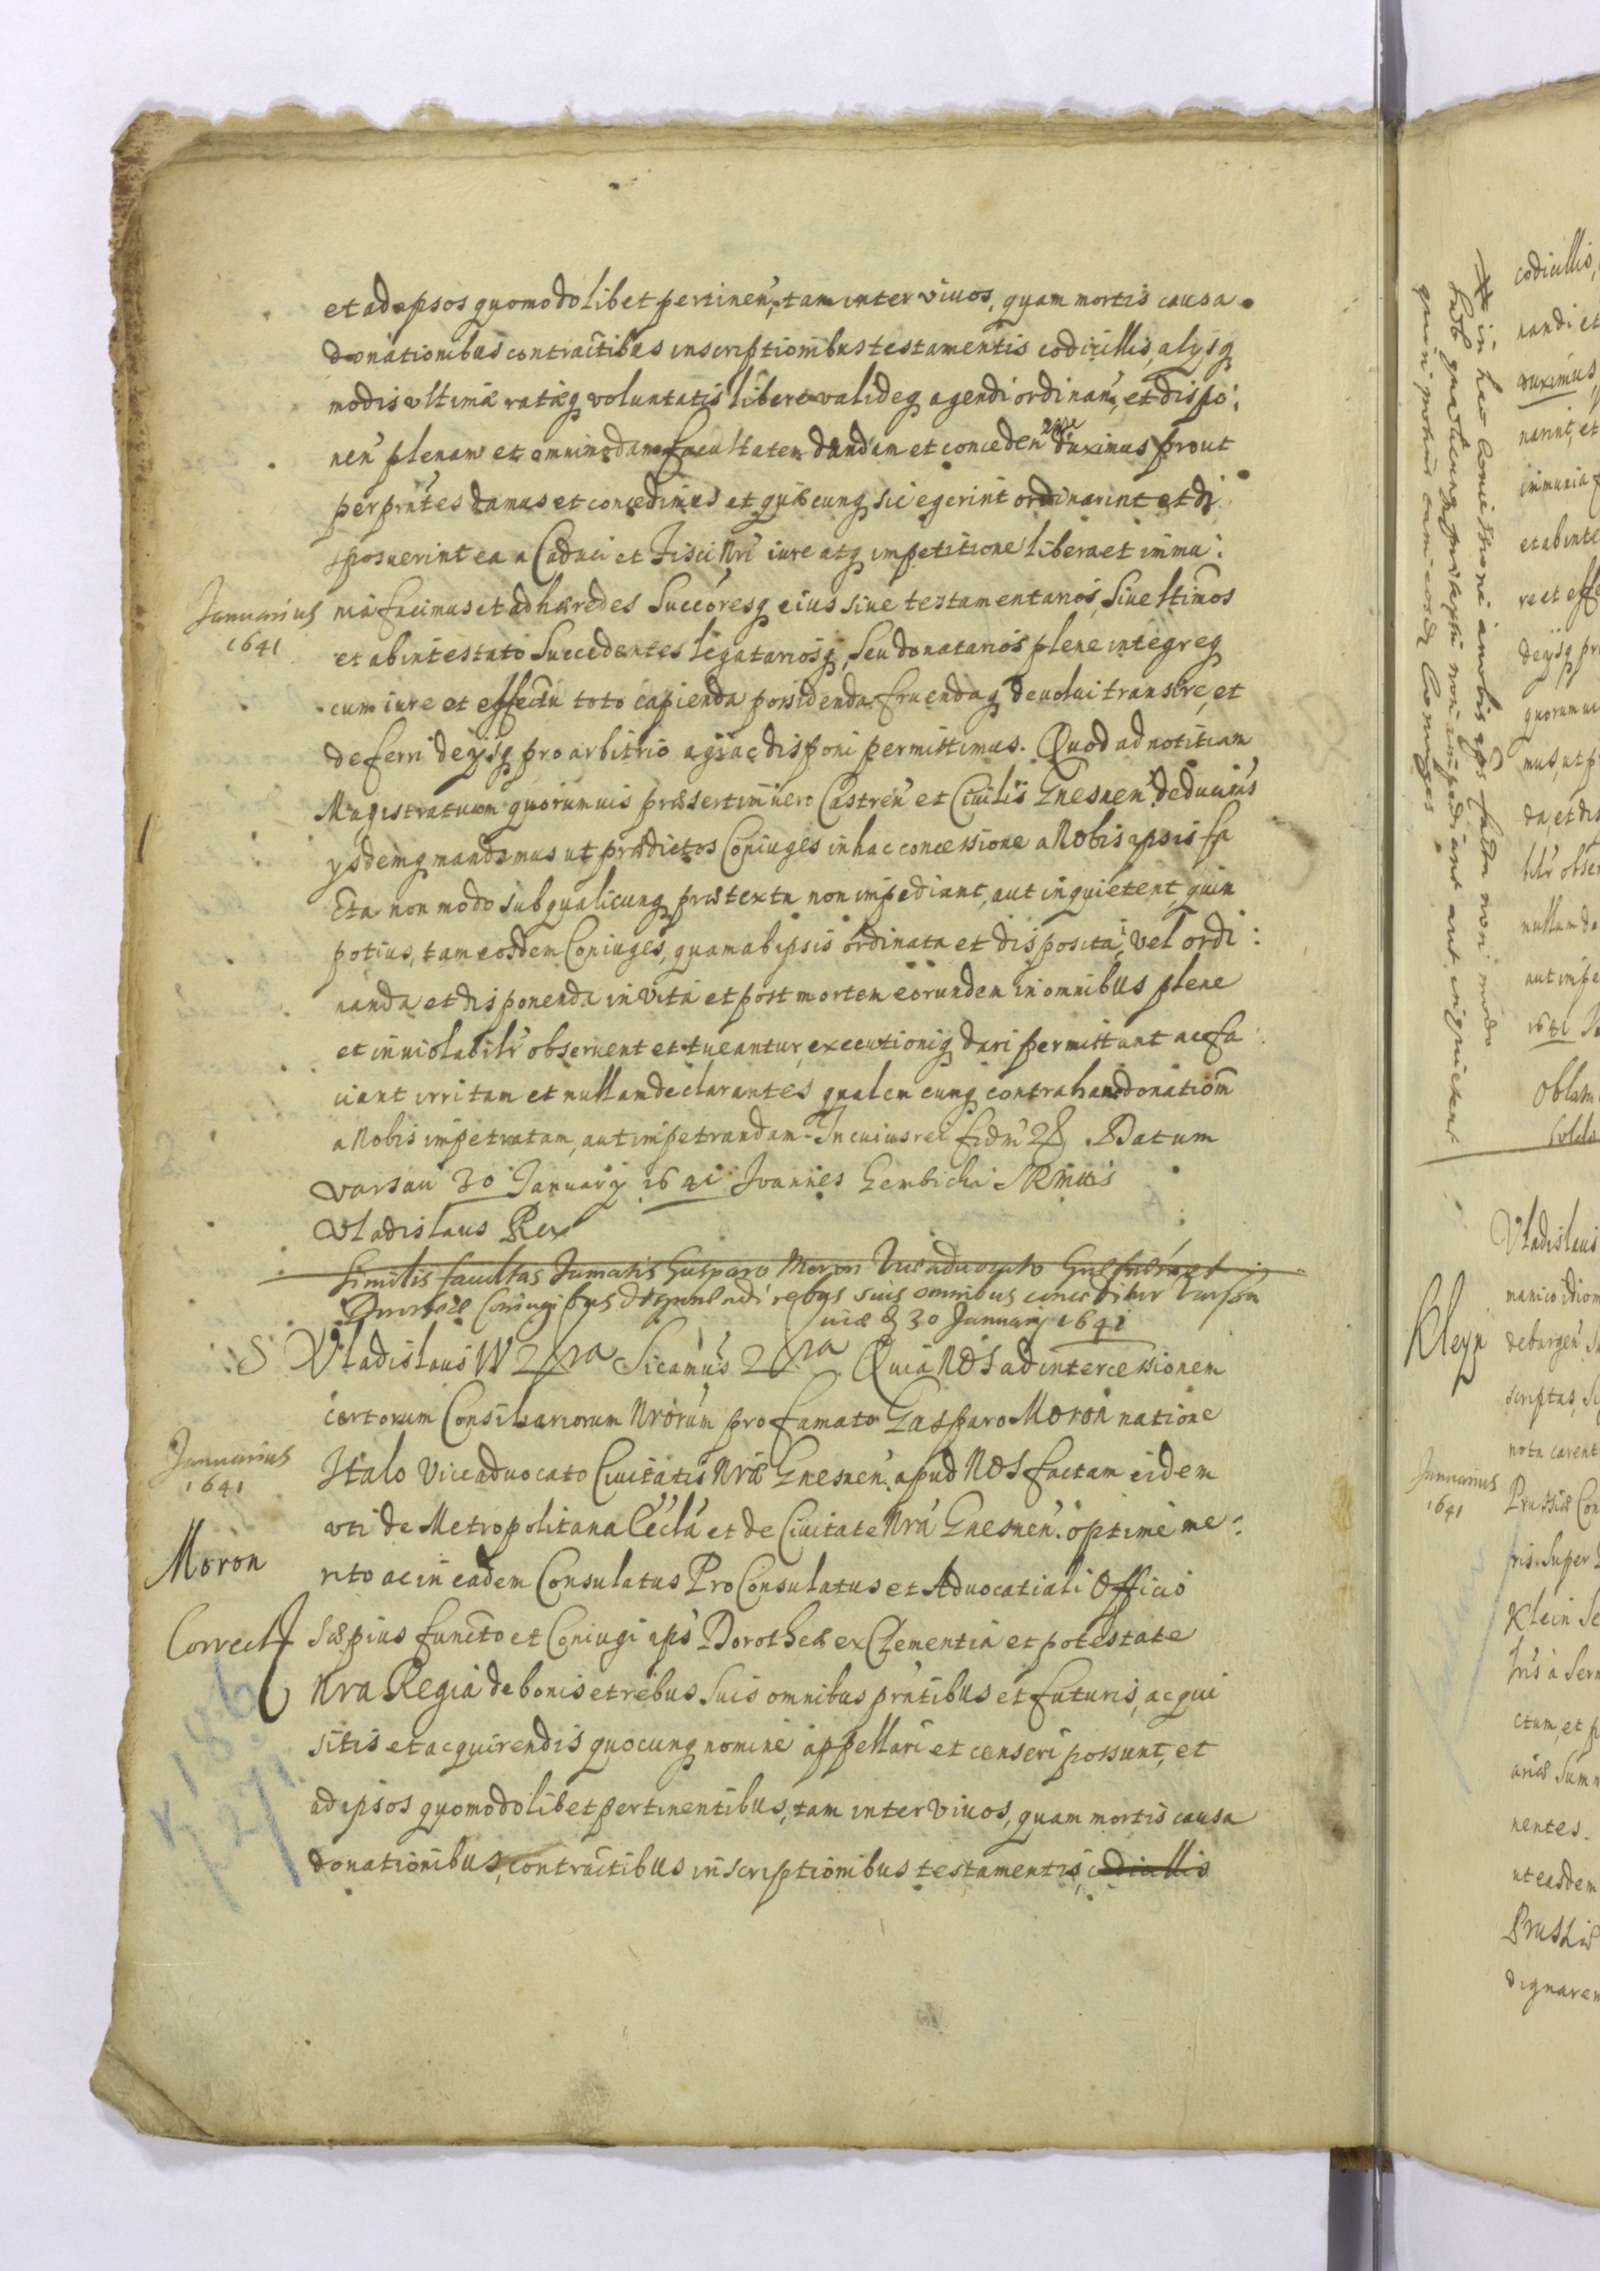 et ad ipsos quomodolibet pertinen', tam inter vivos, quam mortis causa
donationibus contractibus inscriptionibus testamentis codicillis, alysq
modis ultimæ ratæq voluntatis libere valideq agendi ordinan', et dispo:
nen' plenam et omnimodam facultatem dandam et conceden' esse duximus prout
per prntes damus et concedimus et quæcunq sic egerint ordinarint et di
sposuerint ea a Caduci et Fisci Nri iure atq impetitione libera et immu:
Januarius
1641
nia facimus et ad hæredes Succoresq eius siue testamentarios, Siue ltimos
et ab intestato Succedentes legatariosq, Seu donatarios plene integreq
cum iure et effectu toto capienda possidenda fruendaq devolui transire, et
deferri deysq pro arbitrio agi ac disponi permittimus. Quod ad notitiam
Magistratuum quorumuis præsertim vero Castren' et Ciuilis Gnesnen' deducims
ysdemq mandamus ut prædictos Coniuges in hac concessione a Nobis ipsis fa
cta non modo sub qualicunq prætextu non impediant, aut inquietent, quin
potius, tam eosdem Coniuges, quam ab ipsis ordinata et disposita, vel ordi:
nanda et disponenda in vita et post mortem eorundem in omnibus plene
et inuiolabilr obseruent et tueantur, executioniq dari permittant ac fa
ciant irritam et nullam declarantes qualemcunq contrahan donationem
a Nobis impetratam, aut impetrandam. In cuius rei fidm 2 Datum
Varsau 30 January 1641 Joannes Gembicki
Vladislaus Rex
Similis facultas Gasparo Moron Viceaduocato Gnesnensi et
Dorotheæ Coniugibus disponendi rebus suis omnibus conceditur Varso
viæ d 30 Januarij 1641
S Vladislaus IV Sicamus Quia NOS ad intercessionem
certorum Consiliariorum Nrorum pro famato Gasparo Moron natione
Januarius
1641
Italo Viceaduocato Ciuitatis Nræ Gnesnen'. apud NOS factam eidem
uti de Metropolitana Eccla et de Ciuitate Nra Gnesnen'. optime me:
Moron
rito ac in eadem Consulatus ProConsulatus et Aduocatiali Officio
Correct
Sæpius functo et Coniugi eius Dorotheæ ex Clementia et potestate
Nra Regia de bonis et rebus Suis omnibus prntibus et futuris, acqui
sitis et acquirendis quocunq nomine appellari et censeri possunt, et
ad ipsos quomodolibet pertinentibus, tam inter Viuos, quam mortis causa
donationibus, contractibus inscriptionibus testamentis, codicillis
in hac concessione a nobis ipsis facta non modo
sub quacunq prætextu non impediant aut inquietent
quin potius tam eosdem Coniuges
codicillis,
nandi et
duximus,
narint, et
immunia f
et ab inte
re et effe
deysq pro
quorum ui
mus, ut p
da, et dis
bilr obser
nullam de
aut impe
1641
Vladislaus
Kleyn
Januarius
1641
Prussiæ Con
ris. Super
Klein Se
ctum, et p
nentes.
ut easdem
Prussiæ
dignarem